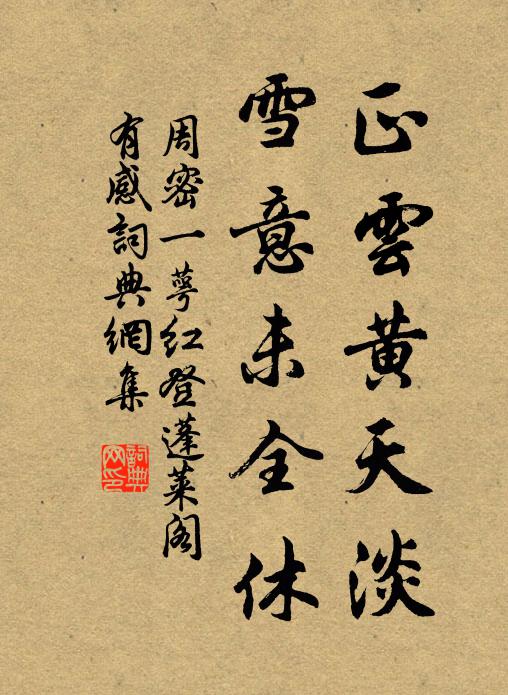 正雲黃天淡
雪意未全休
周密一萼紅登蓬萊閣
有感詞典網集
詞典
网印